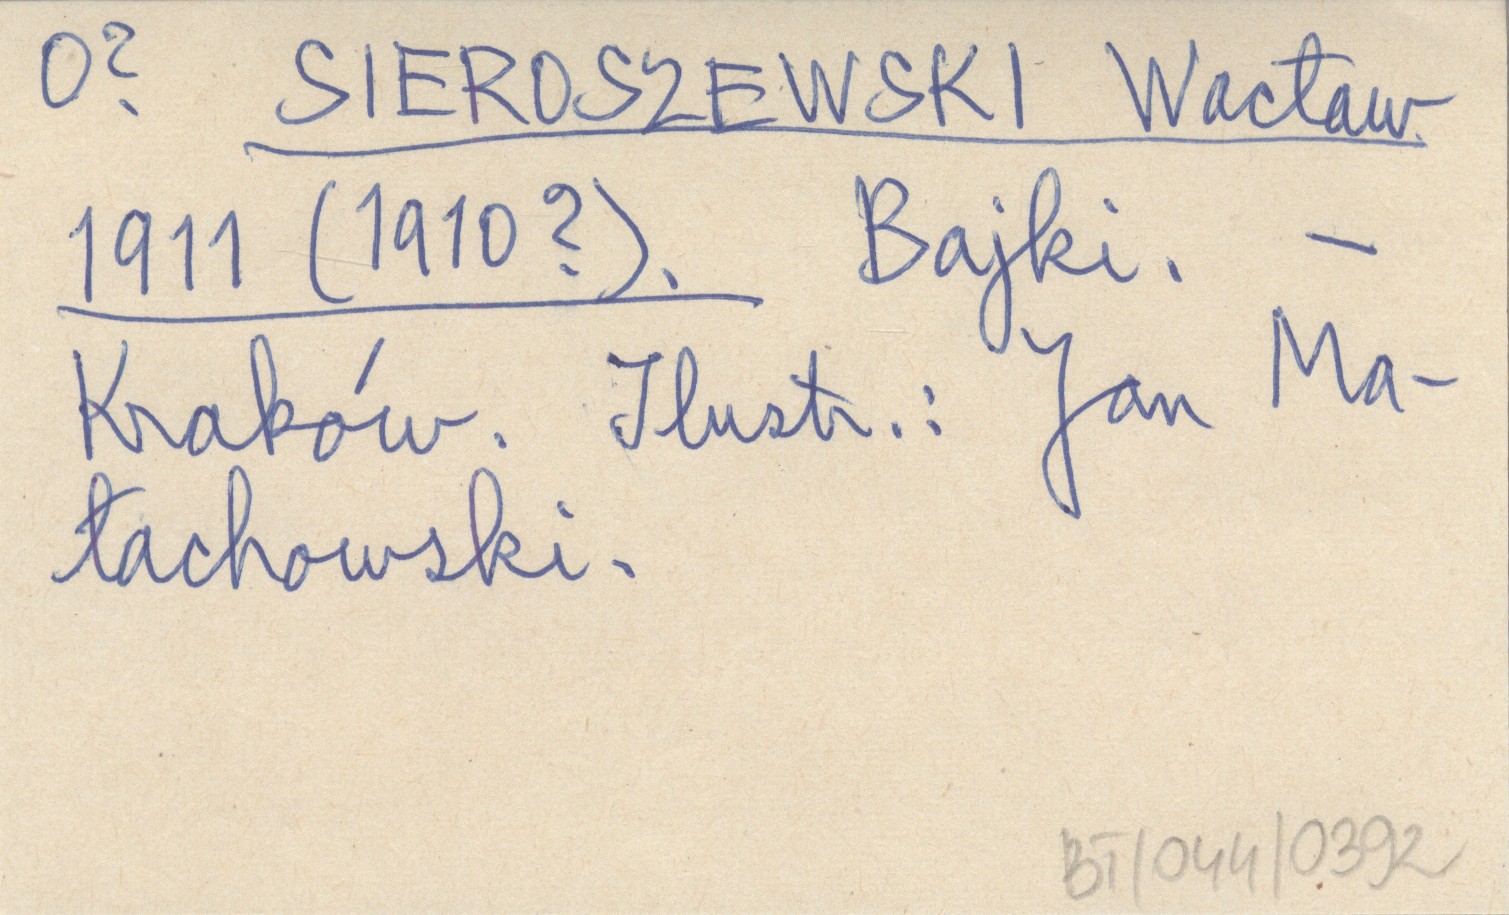 0? SIEROSZEWSKI Wacław
1911 (1910?). Bajki. —
Kraków. Ilustr.: Jan Ma-
łachowski.
BT/044/0392